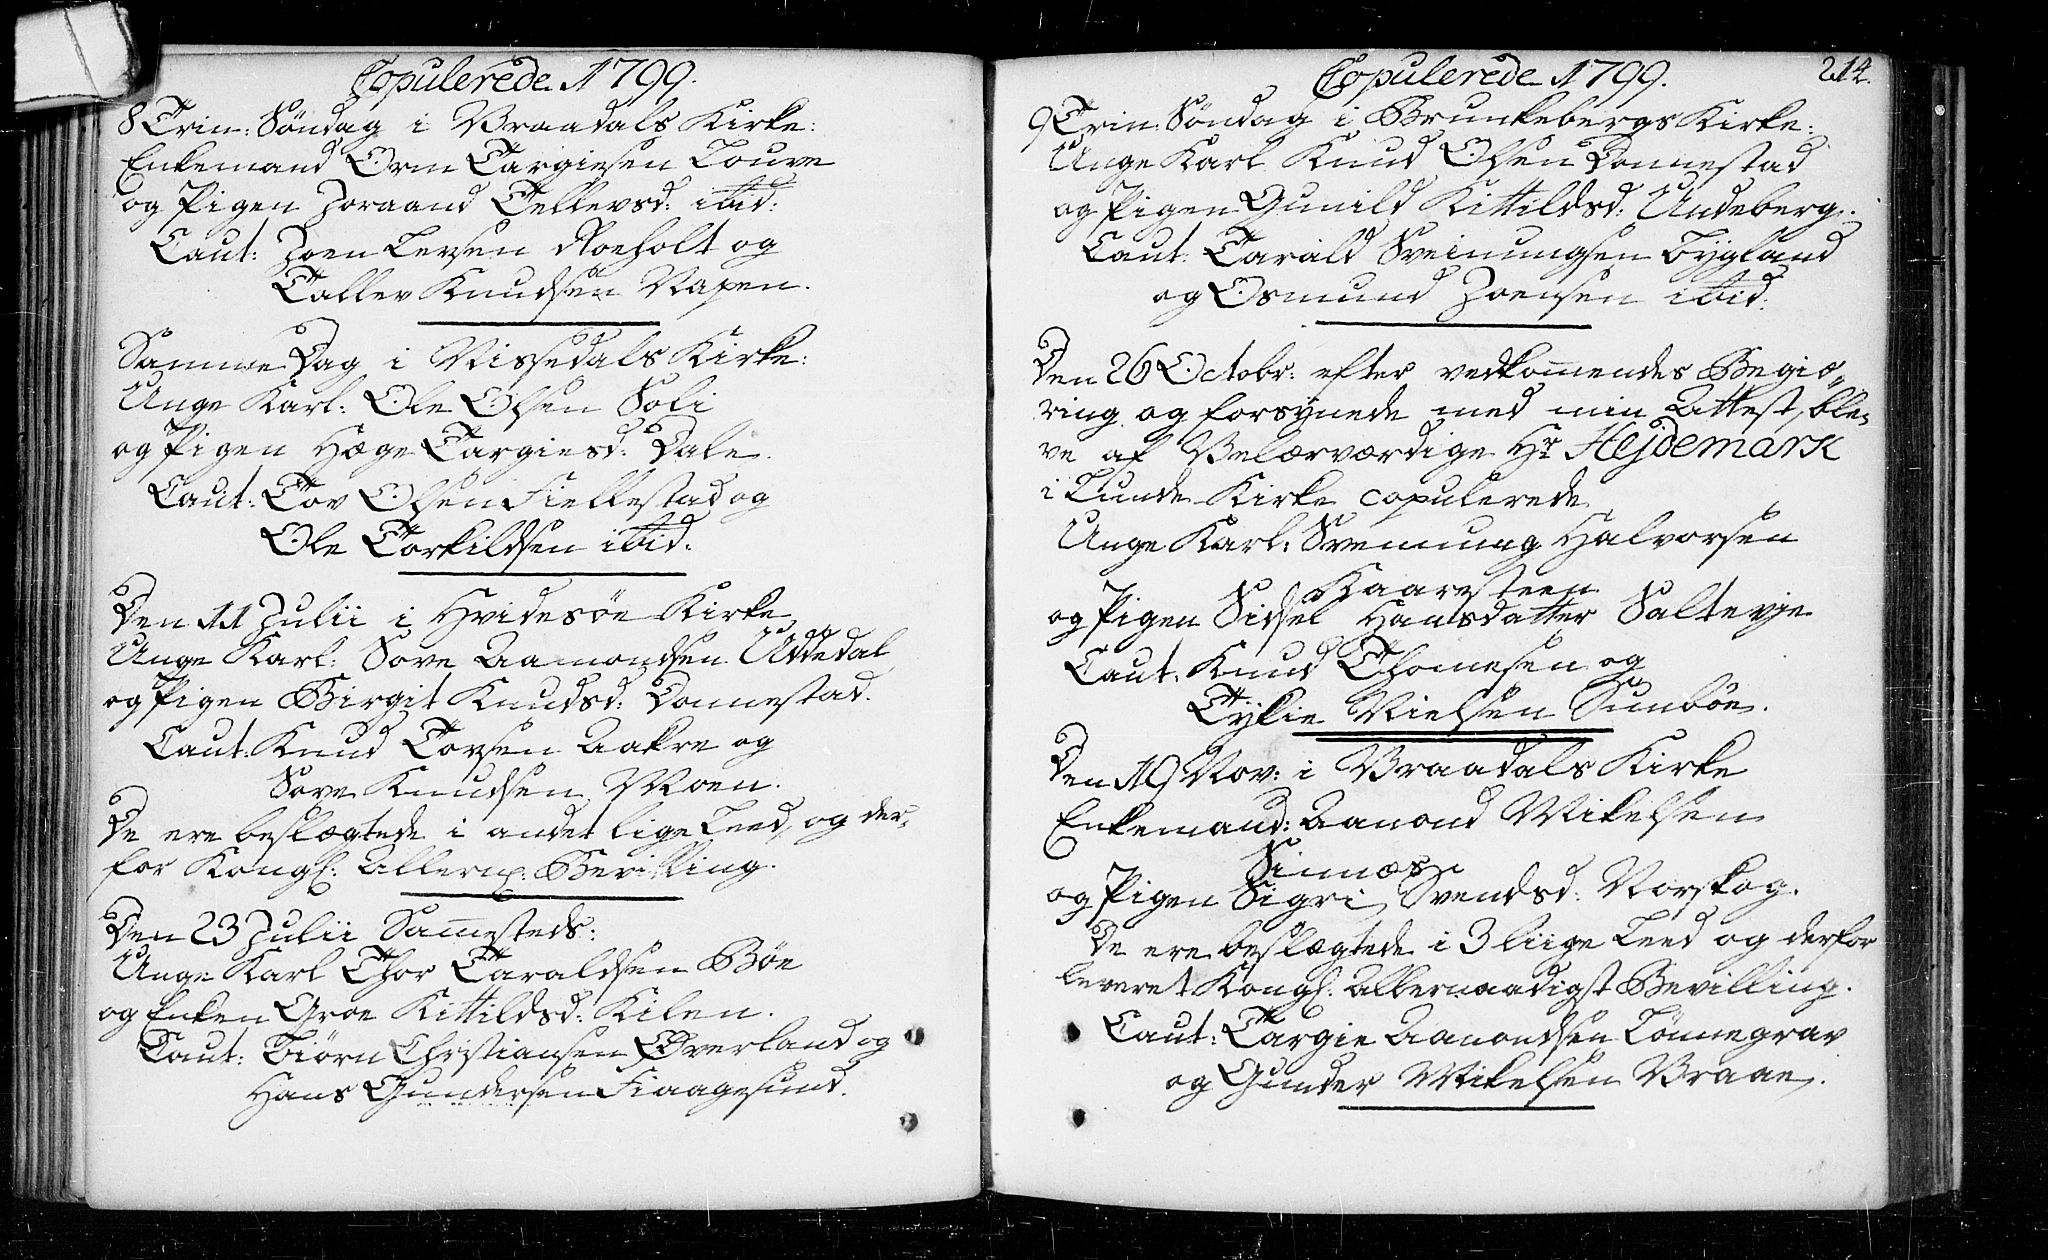 Copulerede 1799.
8 Trin: Søndag i Vraadals Kirke:
Enkemand Orm Targiesen Louve
og Pigen Joraand Tellevsd: ibid:
Caut: Joen Levsen Roeholt og
Tallev Knudsen Napen.
Samme Dag i Nissedals Kirke:
Unge Karl: Ole Olsen Soli
og Pigen Hæge Targiesd: Dale.
Caut: Tov Olsen Fiellestad og
Ole Torkildsen ibid:
Den 11 Julii i Hvidesøe Kirke
Unge Karl: Sove Aamondsen Uddedal
og Pigen Birgit Knudsd: Donnestad.
Caut: Knud Tovsen Aakre og
Sove Knudsen Moen.
De ere beslægtede i andet lige Leed, og der-
for Kongl: Allern: Bevilling.
Den 23 Julii Sammesteds:
Unge Karl Thor Taraldsen Bøe
og Enken Groe Kittildsd: Kilen.
Caut: Biørn Christiansen Øverland og
Hans Gundersen Fiaagesund.
Copulerede 1799. 214.
9 Trin: Søndag i Brunkebergs Kirke:
Unge Karl Knud Olsen Donnestad
og Pigen Gunild Kittildsd: Undeberg.
Caut: Tarald Sveinungsen Bygland
og Osmund Joensen ibid:
Den 26 Octobr: efter vedkommendes Begiæ-
ring og forsynede med min Attest, ble-
ve af Velærværdige Hr Hejdemark
i Lunde Kirke copulerede
Unge Karl: Svenning Halvorsen
Kaaresteen
og Pigen Sidsel Hansdatter Saltevje
Caut: Knud Thomesen og
Tykie Nielsen Sunbøe.
Den 19 Nov: i Vraadals Kirke
Enkemand: Aanond Mikelsen
Sinnæs
og Pigen Sigri Svendsd: Norskog.
De ere beslægtede i 3 liige Leed og derfor
leveret Kongl: Allernaadigst Bevilling.
Caut: Targie Aanondsen Lønnegrav
og Gunder Mikelsen Vraae.